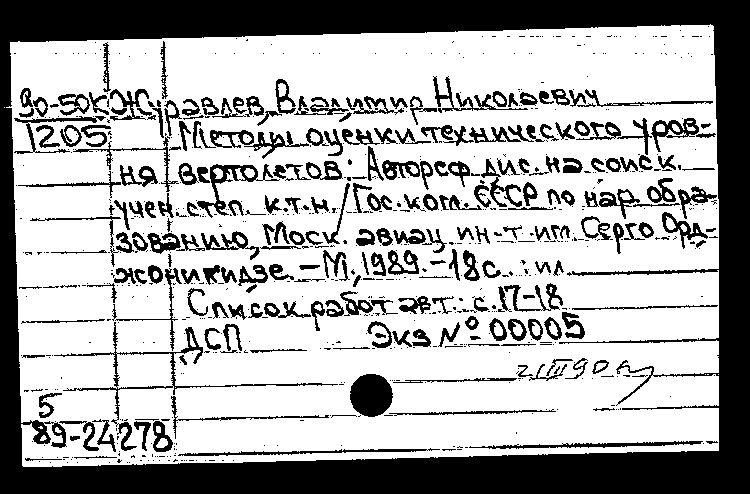 90-50К Журавлев, Владимир Николаевич
1205 Методы оценки технического уров-
ня вертолетов: Автореф. дис. на соиск.
учен. степ. к.т.н. / Гос. ком. СССР по нар. обра-
зованию, Моск. авиац. ин-т им. Серго Орд-
жоникидзе. – М., 1989. – 18 с. : ил.
Список работ авт.: с. 17-18
ДСП Экз № 00005
5
89-24278